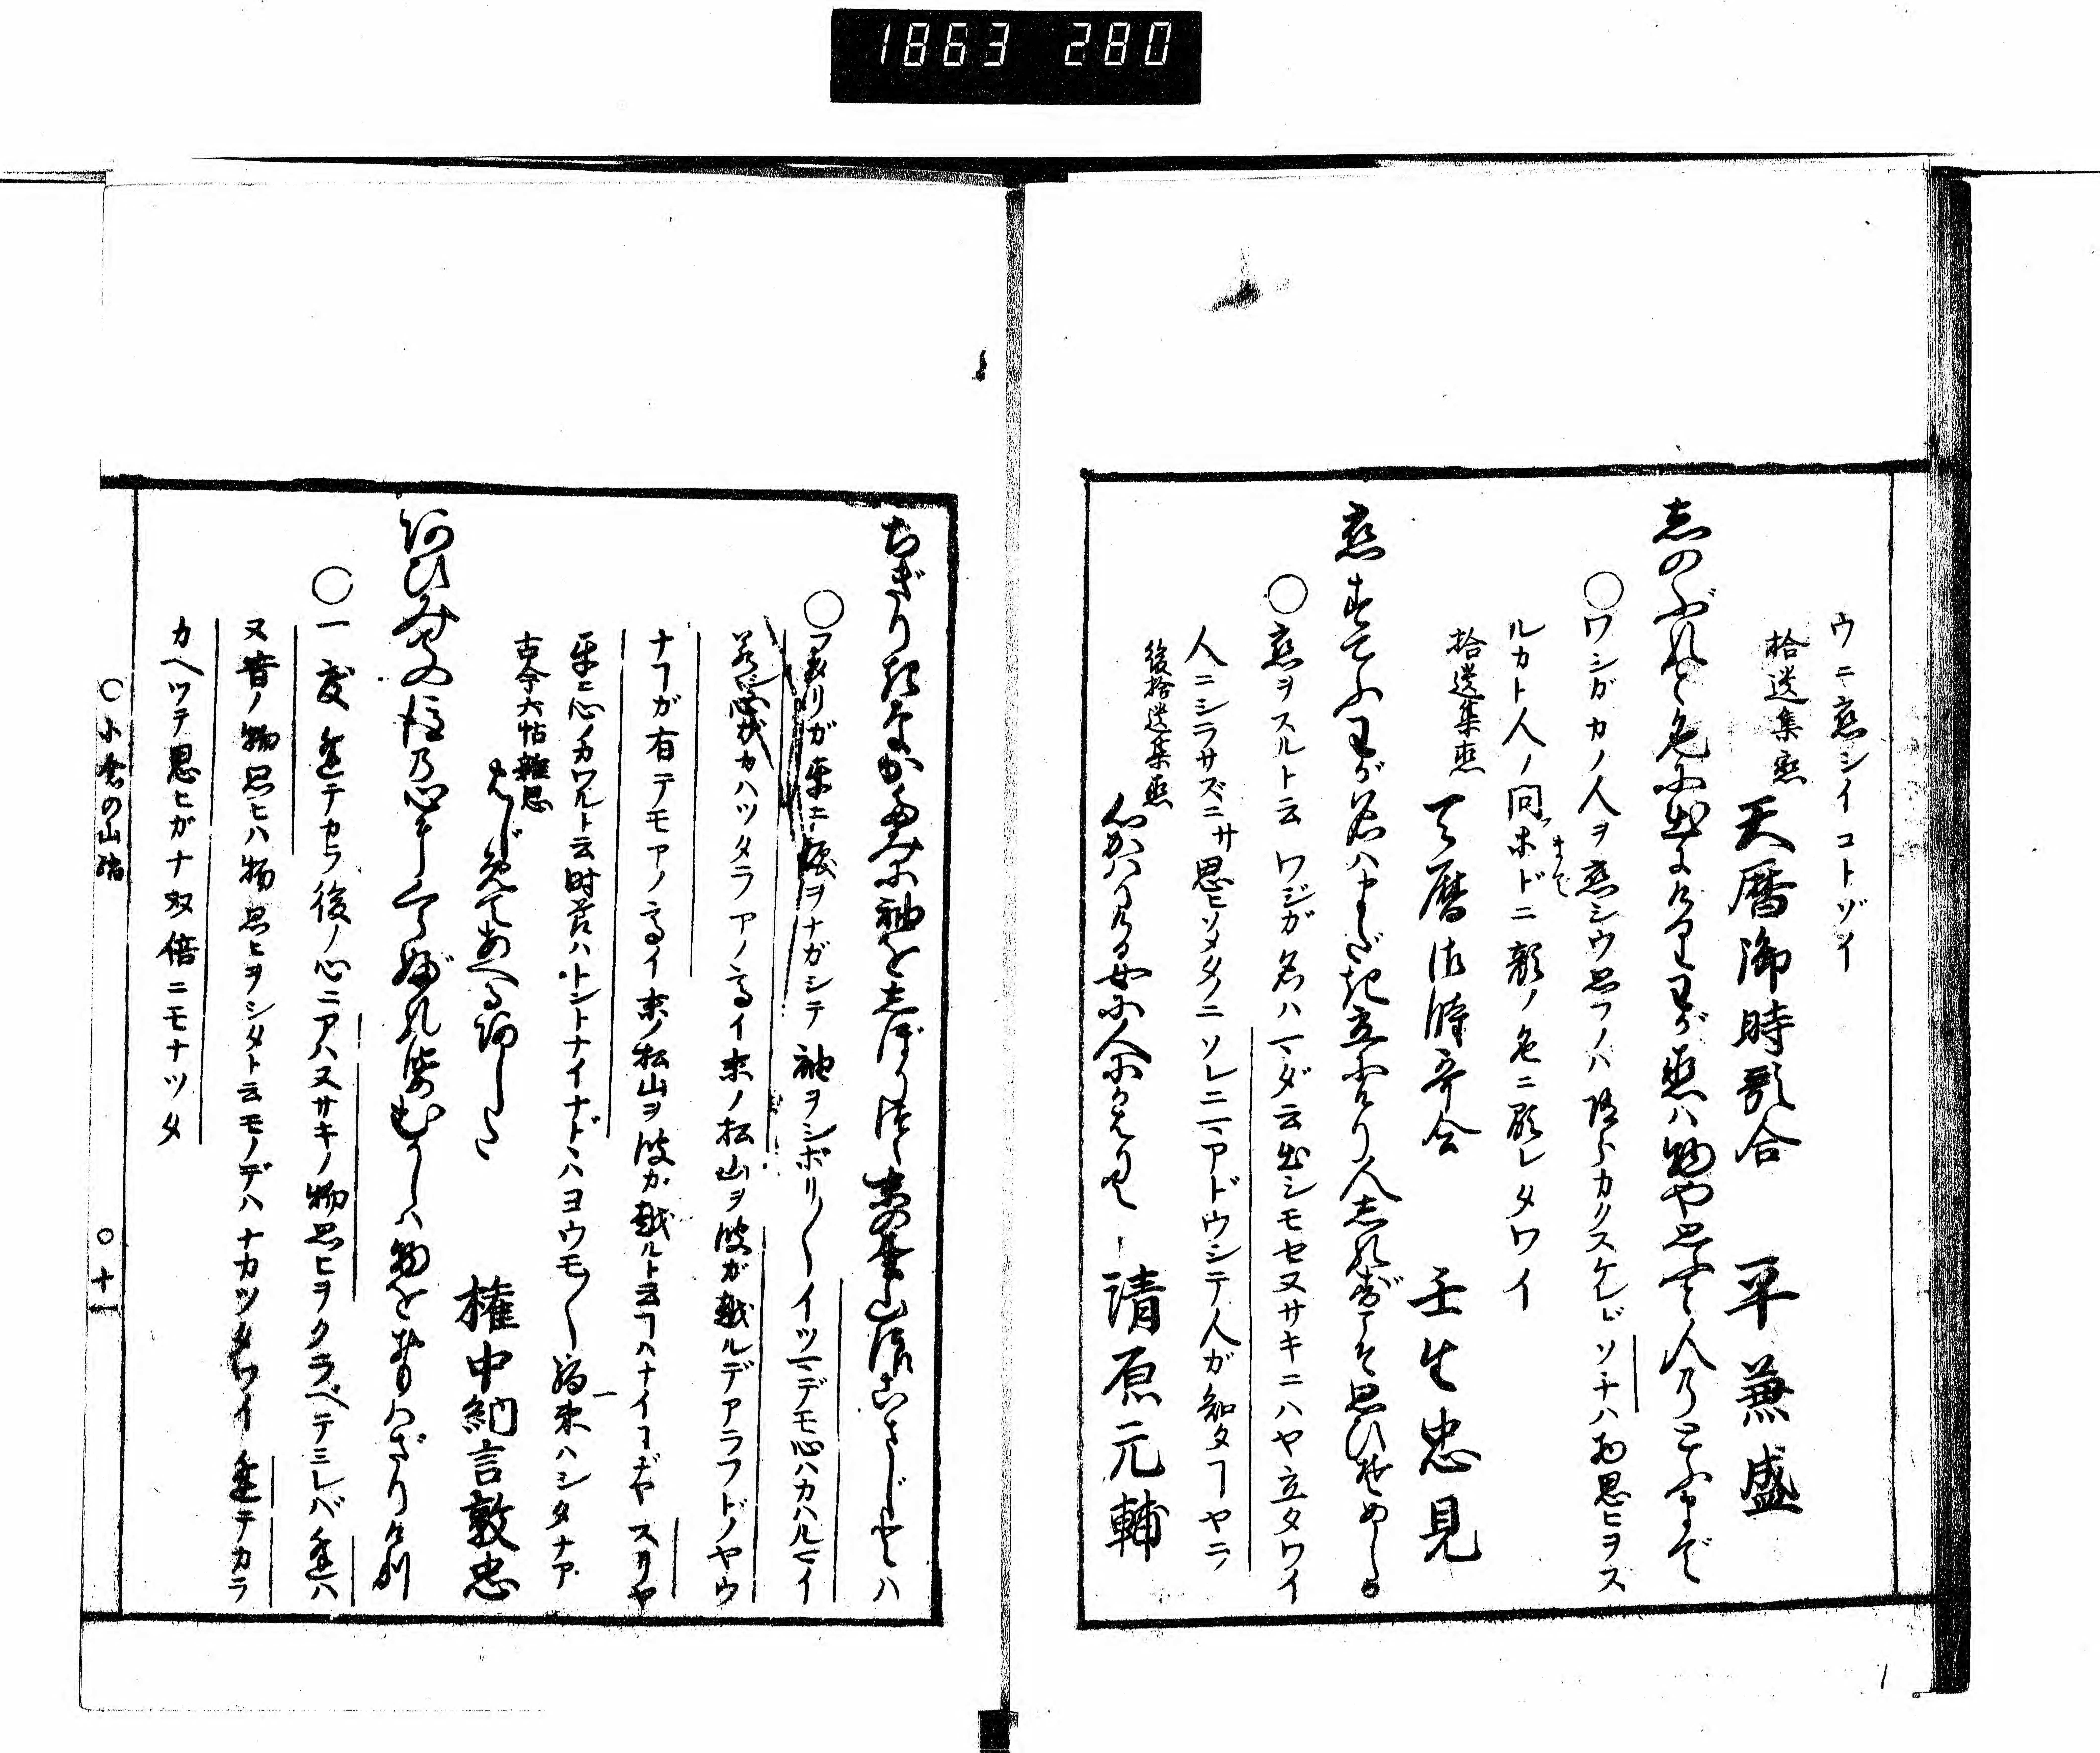 1863 280
ウニ恋シイコトゾイ
拾遺集恋
天暦御時歌合 平兼盛
志のぶれど色に出にけりわが恋ハ物や思ふと人のとふまで
○ワシガカノ人ヲ恋シウ思フノハ隠ㇱカクスケレドソチハ物思ヒヲス
ルカト人ノ問ホドニ顔ノ色ニ顕レタワイ
まで
拾遺集恋
天暦御時歌合 壬生忠見
恋すてふわが名ハまだき立にけり人志れずこそ思ひそめしか
○恋ヲスルト云ワシガ名ハマダ云出シモセヌサキニハヤ立タワイ
人ニシラサズニサ思ヒソメタノニソレニマアドウシテ人ガ知タヿヤラ
後拾遺集恋
心かハりける女に人にかはりて 清原元輔
ちぎりきなかたみに袖を志ぼりつゝ末の松山浪こさじとハ
ガ互ニ涙ヲナガシテ袖ヲシボリ〳〵イツマデモ心ハカハルマイ
若心ガカハツタラアノ高イ末ノ松山ヲ波ガ越ルデアラフドノヤウ
ナヿガ有テモアノ高イ末ノ松山ヲ波ガ越ルト云ヿハナイヿぢヤスリヤ
互ニ心ノカワルト云時節ハトントナイナドヽハヨウモ〳〵約束ハシタナア
古今六帖雑思
はじめてあへるあした
権中納言敦忠
あひみての後の心にくらぶれバむかしハ物をおもハざりけり
○一度逢テカラ後ノ心ニアハヌサキノ物思ヒヲクラベテミレバ逢ハ
ヌ昔ノ物思ヒハ物思ヒヲシタト云モノデハナカツタワイ逢テカラ
カヘツテ思ヒガナ双倍ニモナツタ
○小倉の山踏 ○十一